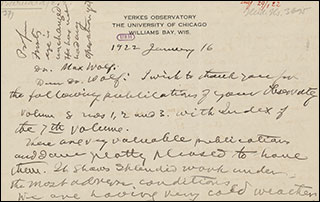 YERKES OBSERVATORY
THE UNIVERSITY OF CHICAGO
WILLIAMS BAY, WIS.
1922 January 16
Dr. Max Wolf.
Dear Dr. Wolf: I wish to thank you for
the following publications of your Observatory
Volume 8 nos 1, 2 and 3. with Index of
the 7th volume.
These are very valuable publications
and I am greatly pleased to have
them. It shows splendid work under
the most adverse conditions.
We are having very cold weather